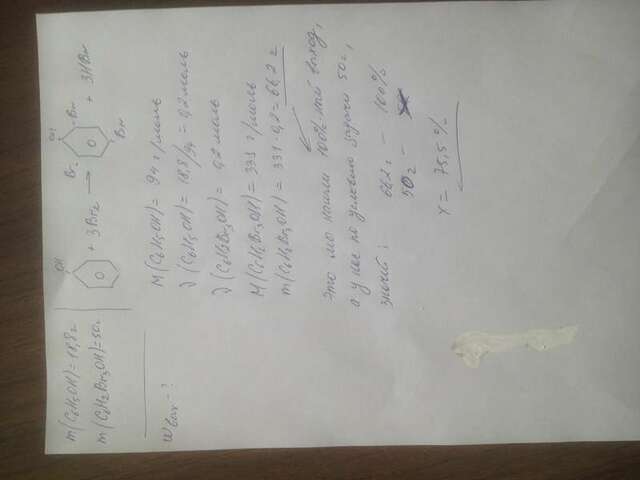 m(C6H5OH)=18,8г
m(C6H2Br3OH)=50г
Wвых-?
OH
+ 3Br2 → Br OH Br Br + 3HBr
M(C6H5OH) = 94 г/моль
ν(C6H5OH) = 18,8/94 = 0,2 моль
ν(C6H2Br3OH) = 0,2 моль
M(C6H2Br3OH) = 331 г/моль
m(C6H2Br3OH) = 331·0,2 = 66,2 г
Это мы нашли 100%-ный выход,
а у нас по условию задачи 50г,
значит: 66,2г - 100%
50г - x
x = 75,5%